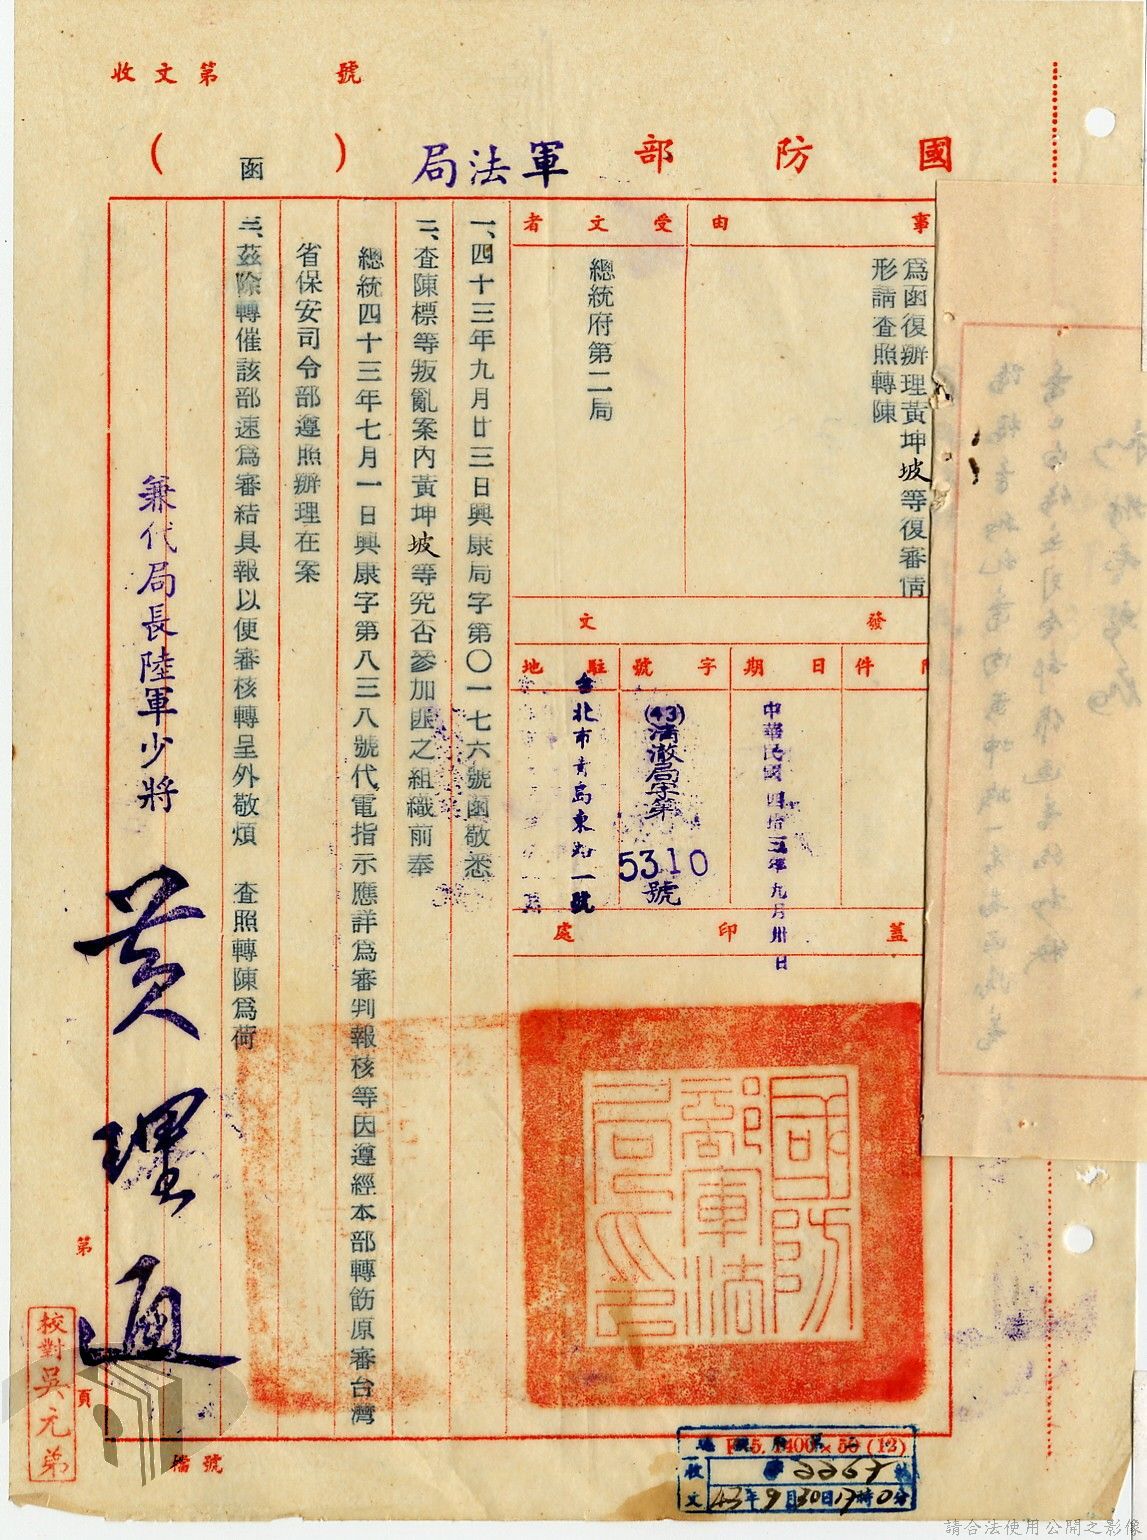 收文第　　　號
國防部軍法局
（函）
事由
為函復辦理黃坤坡等復審情
形請查照轉陳
受文者
總統府第二局
發文
附件
日期
中華民國四拾三年九月卅日
字號
(43)清澈局字第
5310
號
駐地
台北市青島東路一號
蓋印處
國防部軍法局印
一、四十三年九月廿三日興康局字第〇一七六號函敬悉
二、查陳標等叛亂案內黃坤坡等究否參加匪之組織前奉
總統四十三年七月一日興康字第八三八號代電指示應詳為審判報核等因遵經本部轉飭原審台灣
省保安司令部遵照辦理在案
三、茲除轉催該部速為審結具報以便審核轉呈外敬煩　查照轉陳為荷
兼代局長陸軍少將
黃理直
第　頁
校對吳元弟
檔號
收文
43年9月30日17時0分
請合法使用公開之影像